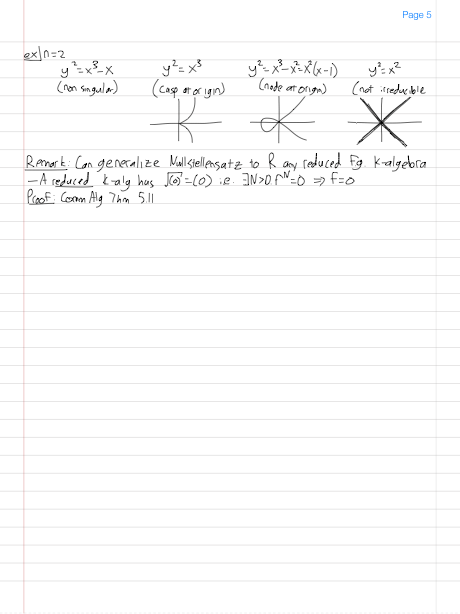 Page 5
ex| n=2
y²=x³-x y²=x³ y²=x³-x²=x²(x-1) y²=x²
(non singular) (cusp at origin) (node at origin) (not irreducible
Remark: Can generalize Nullstellensatz to R any reduced Fg. k-algebra
-A reduced k-alg has √(0)=(0) i.e. ∃N>0 f^N=0 ⇒ f=0
Proof: Comm Alg Thm 5.11